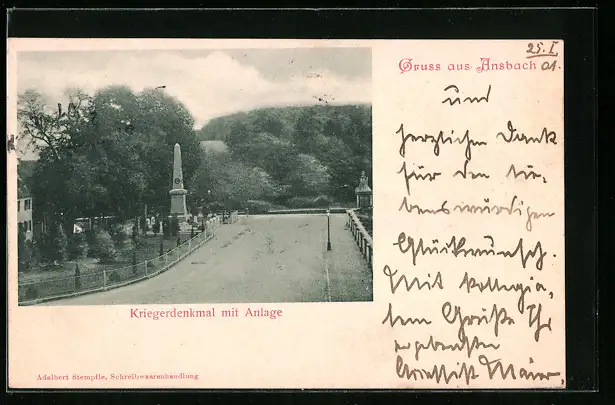 25. I.
01.
Gruss aus Ansbach
und
herzlichen Dank
für den lie-
benswürdigen
Glückwunsch.
Mit kollegia-
lem Gruße Ihr
ergebenster
Maier.
Kriegerdenkmal mit Anlage
Adalbert Stempfle, Schreibwaarenhandlung